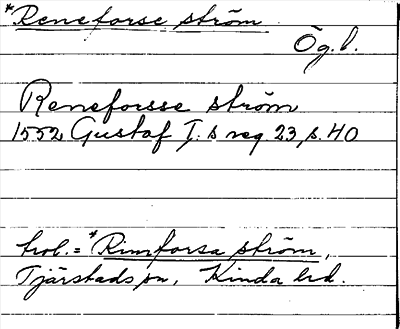 *Reneforse ström
Ög.l.
Reneforsse ström
1552 Gustaf I.s reg 23, s. 40
trol. = *Rimforsa ström,
Tjärstads sn, Kinda hd.